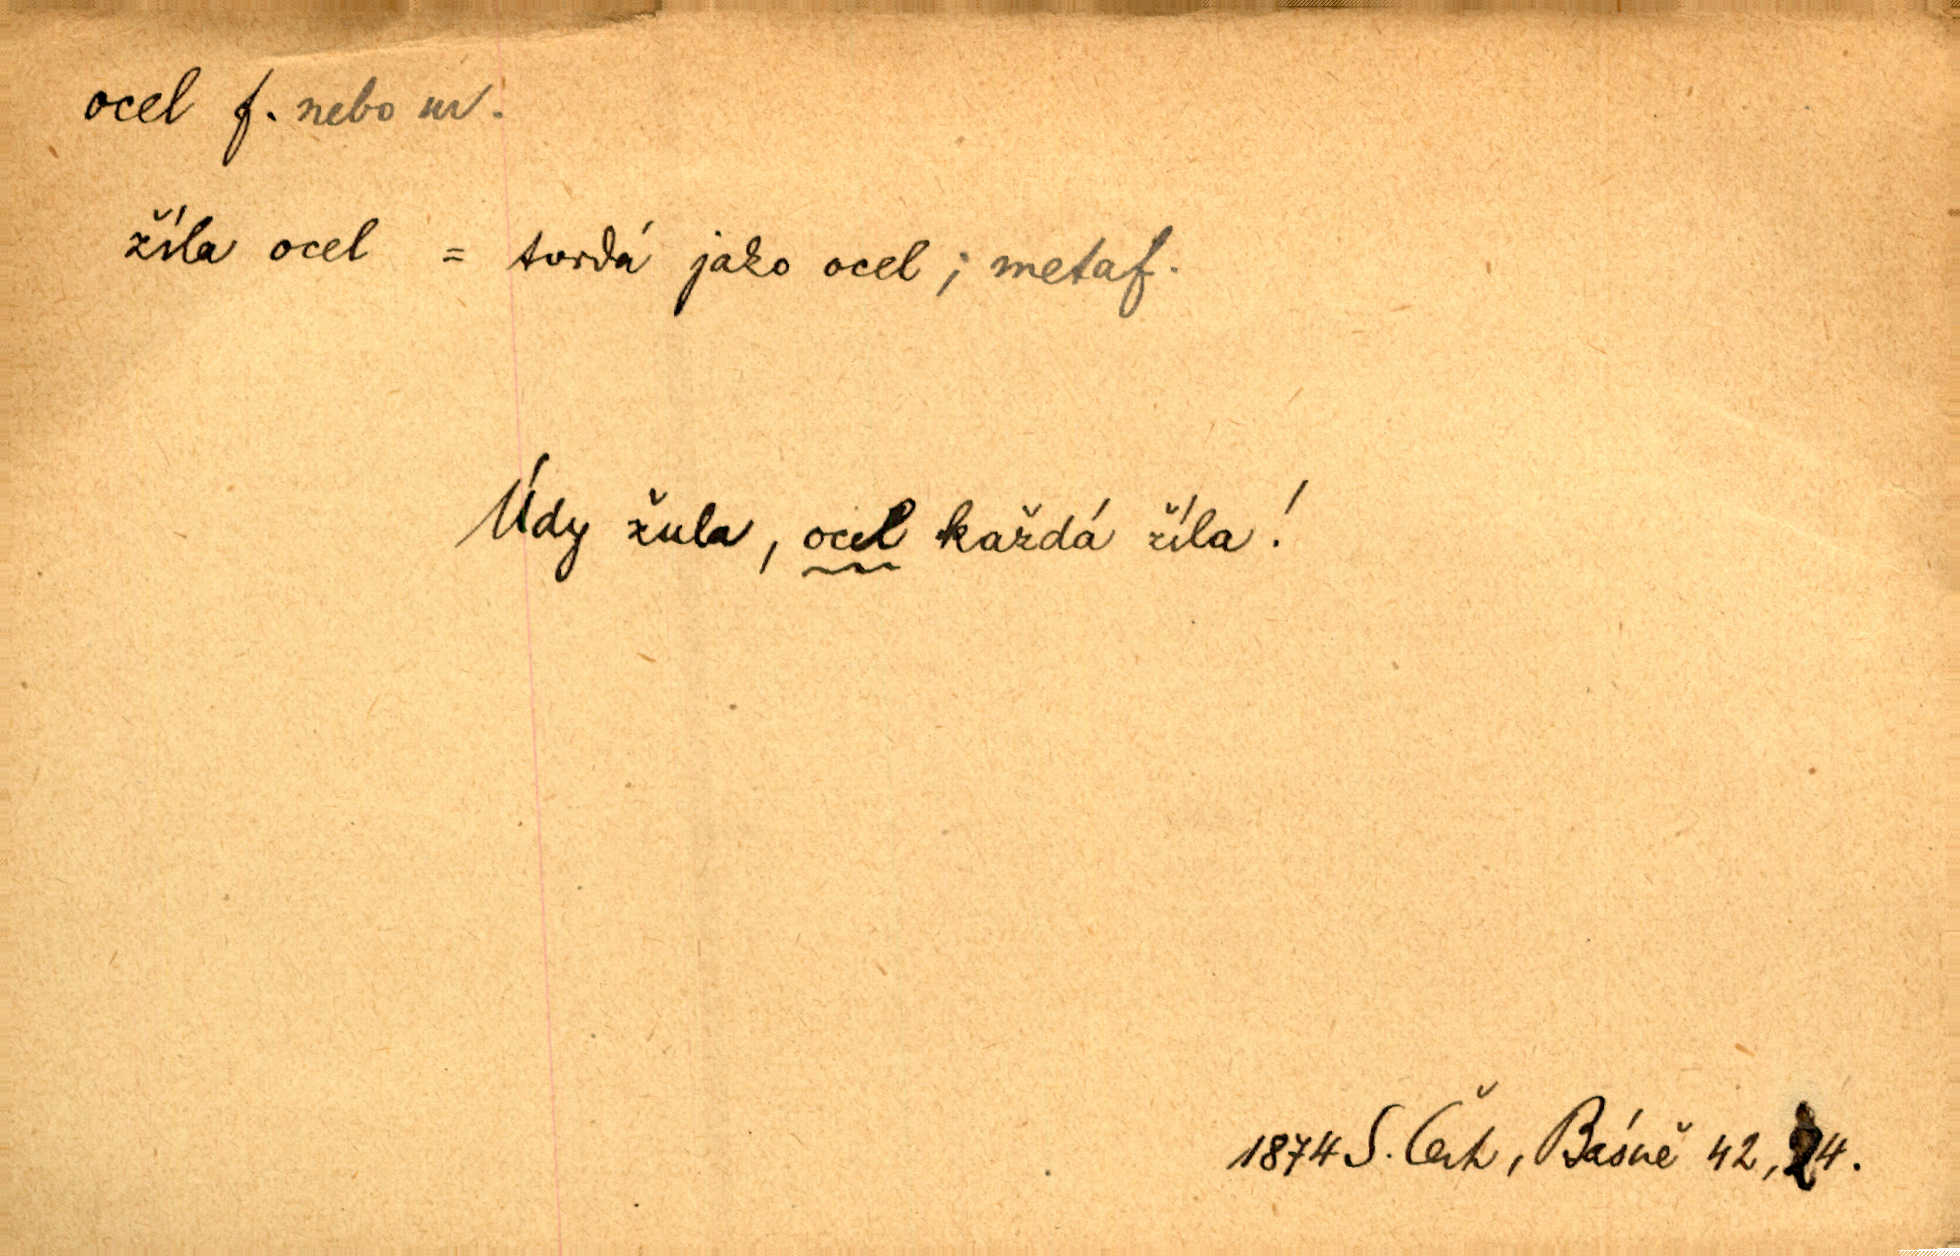 ocel f. nebo m.
žíla ocel = tvrdá jako ocel; metaf.
Údy žula, ocel každá žíla!
1874 S. Čech, Básně 42, 24.